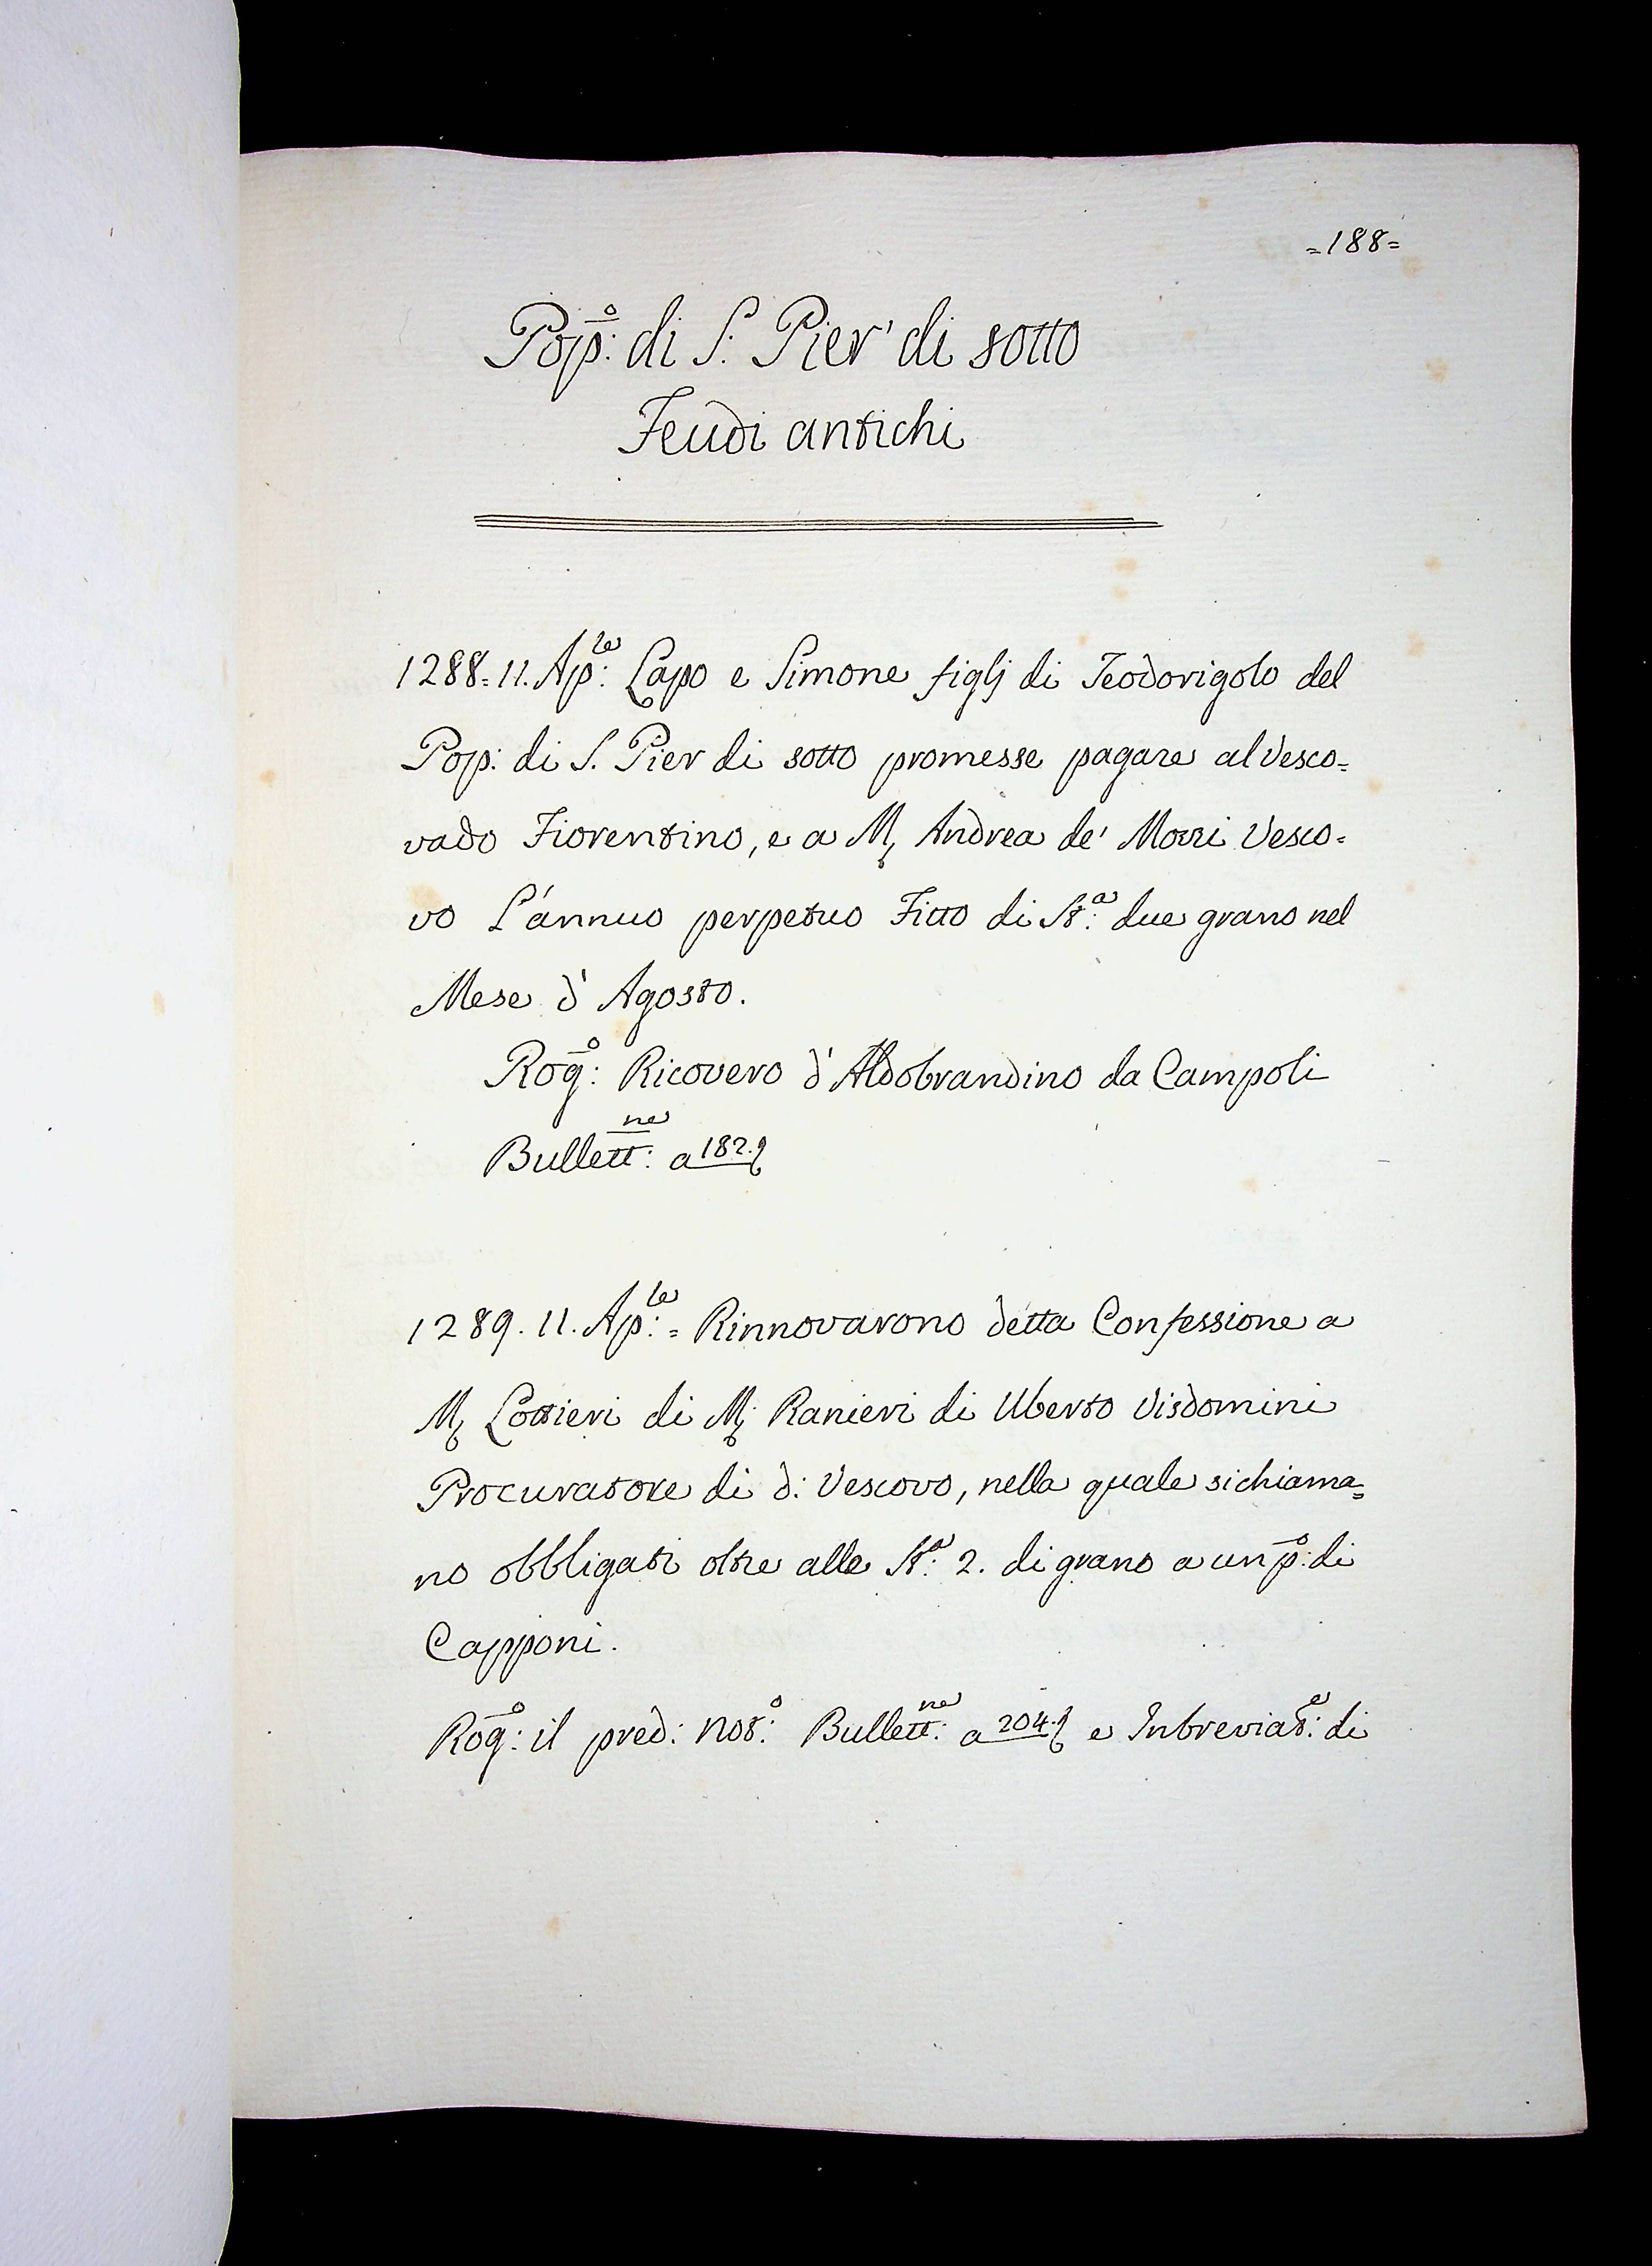 =188=
Pop:º di S: Pier' di sotto
Feudi antichi
1288=11. Ap:le Lapo e Simone figlj di Teodorigolo del
Pop: di S. Pier di sotto promesse pagare al Vesco=
vado Fiorentino, e a M, Andrea de' Mozzi Vesco=
vo L'annuo perpetuo Fitto di St:a due grano nel
Mese d'Agosto.
Rog:º Ricovero d'Aldobrandino da Campoli
Bullett:ne a 182.
1289. 11. Ap:le = Rinnovarono detta Confessione a
M, Lottieri di M, Ranieri di Uberto Visdomini
Procuratore di d: Vescovo, nella quale si chiama=
no obbligati oltre alle St:a 2. di grano a un p:º di
Capponi.
Rog:º il pred: Not:º Bullett:ne a 204. e Inbreviat:e di